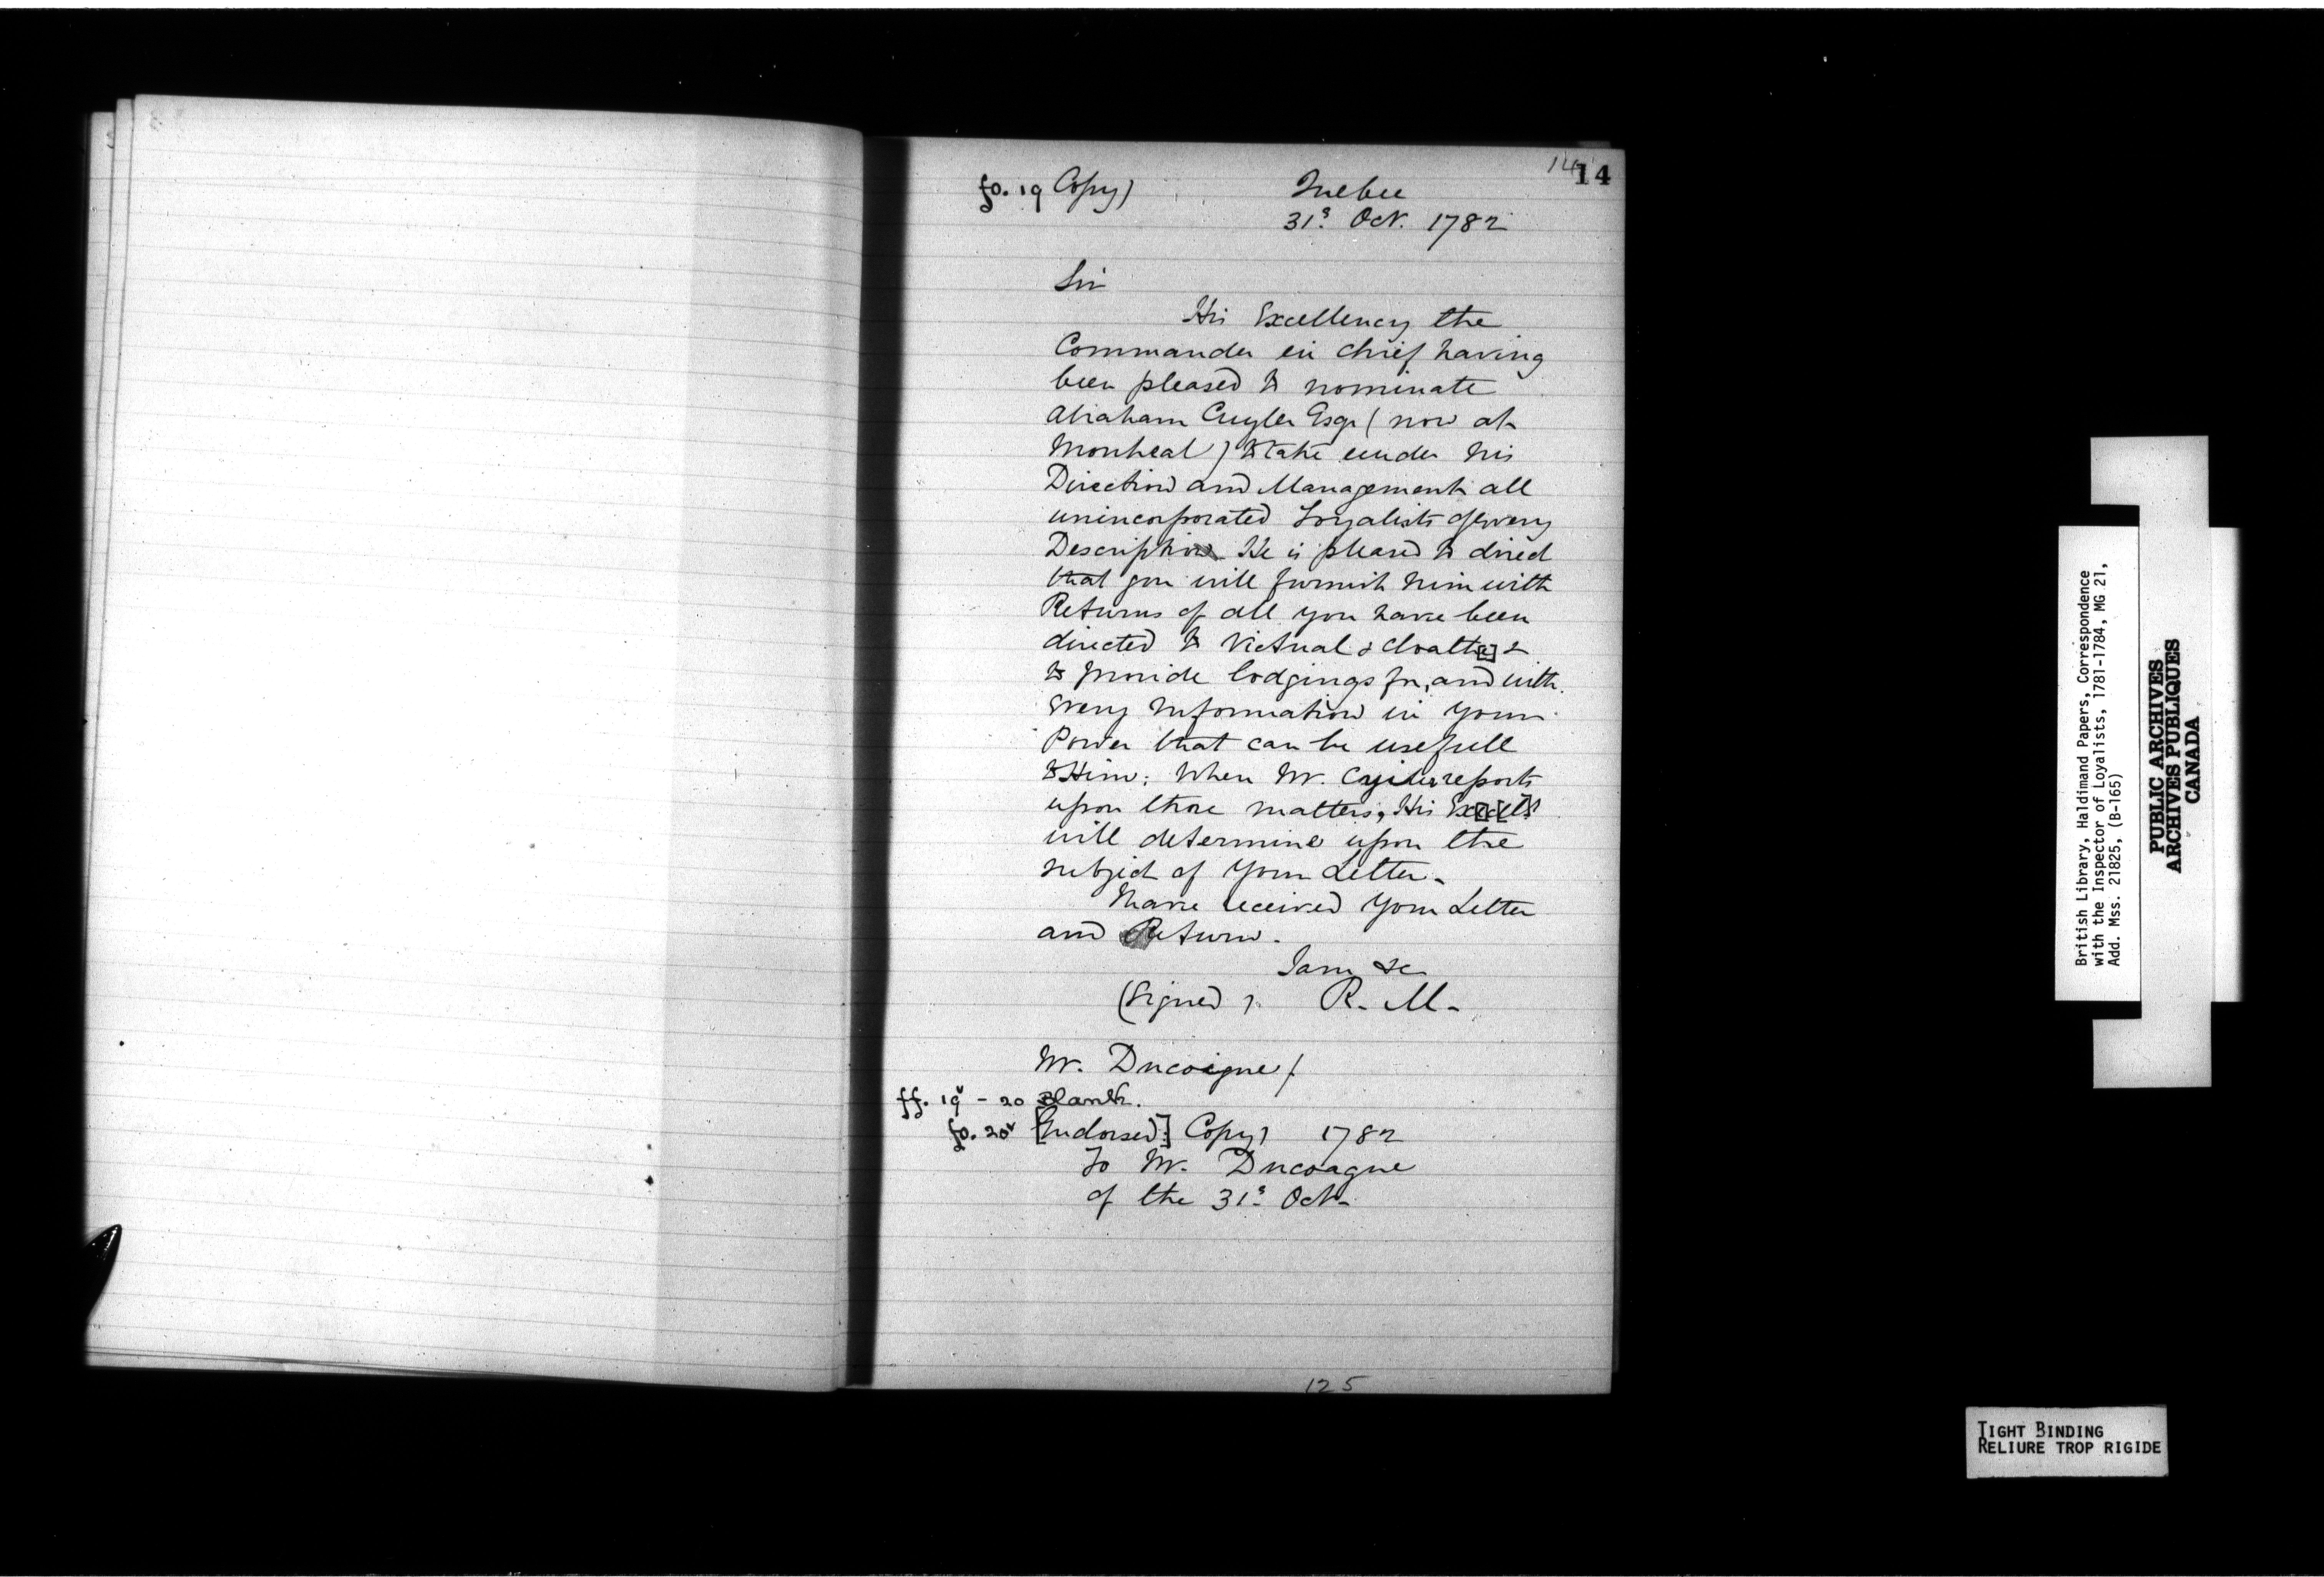 14 14
fo. 19 Copy) Quebec
31s. Oct. 1782
Sir
His Excellency the
Commander in Chief having
been pleased to nominate
Abraham Cuyler Esqr (now at
Montreal) to take under his
Direction and Management all
unincorporated Loyalists of every
Description He is pleased to direct
that you will furnish him with
Returns of all you have been
directed to Victual & cloath[e] &
to provide lodgings for, and with
every Information in Your
Power that can be usefull
to Him: When Mr. Cuyler reports
upon those matters, His
will determine upon the
subject of Your Letter.
I have received Your Letter
and Return.
I am &c
(Signed). R. M.
Mr. Ducoigne/
ff. 19v - 20 Blank.
fo. 20v [Endorsed:] Copy) 1782
To Mr. Ducoagne
of the 31s. Oct.
125
British Library, Haldimand Papers, Correspondence
with the Inspector of Loyalists, 1781-1784, MG 21,
Add. Mss. 21825, (B-165)
PUBLIC ARCHIVES
ARCHIVES PUBLIQUES
CANADA
TIGHT BINDING
RELIURE TROP RIGIDE